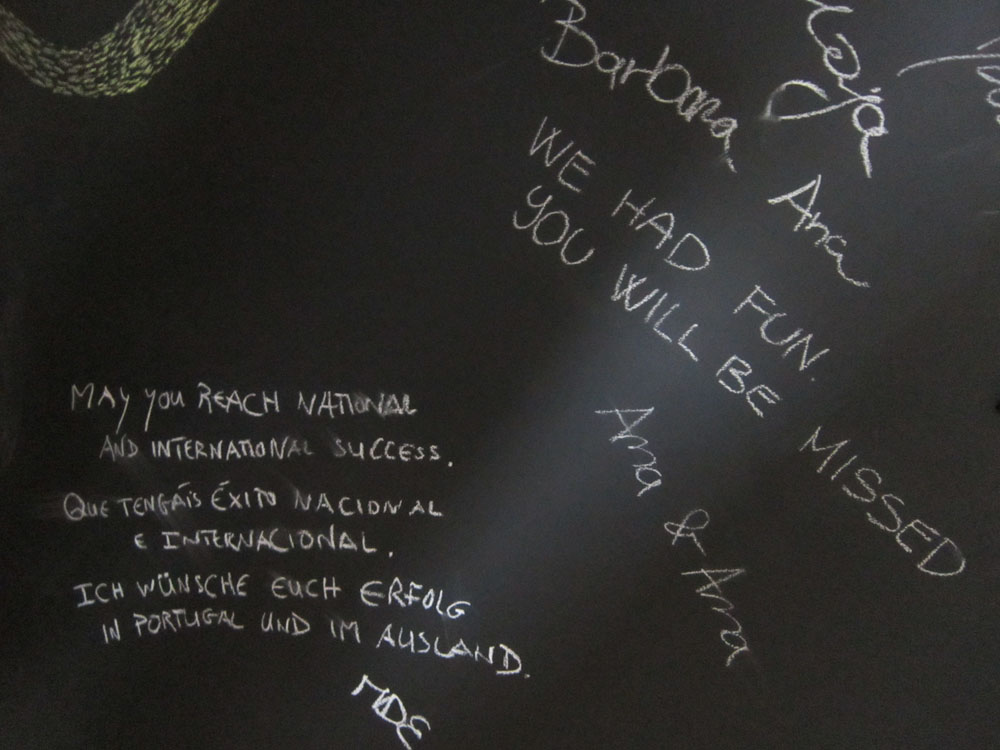 Barbara
Ana
WE HAD FUN.
YOU WILL BE MISSED
Ana & Ana
MAY YOU REACH NATIONAL
AND INTERNATIONAL SUCCESS.
QUE TENGÁIS ÉXITO NACIONAL
E INTERNACIONAL.
ICH WÜNSCHE EUCH ERFOLG
IN PORTUGAL UND IM AUSLAND.
MDE